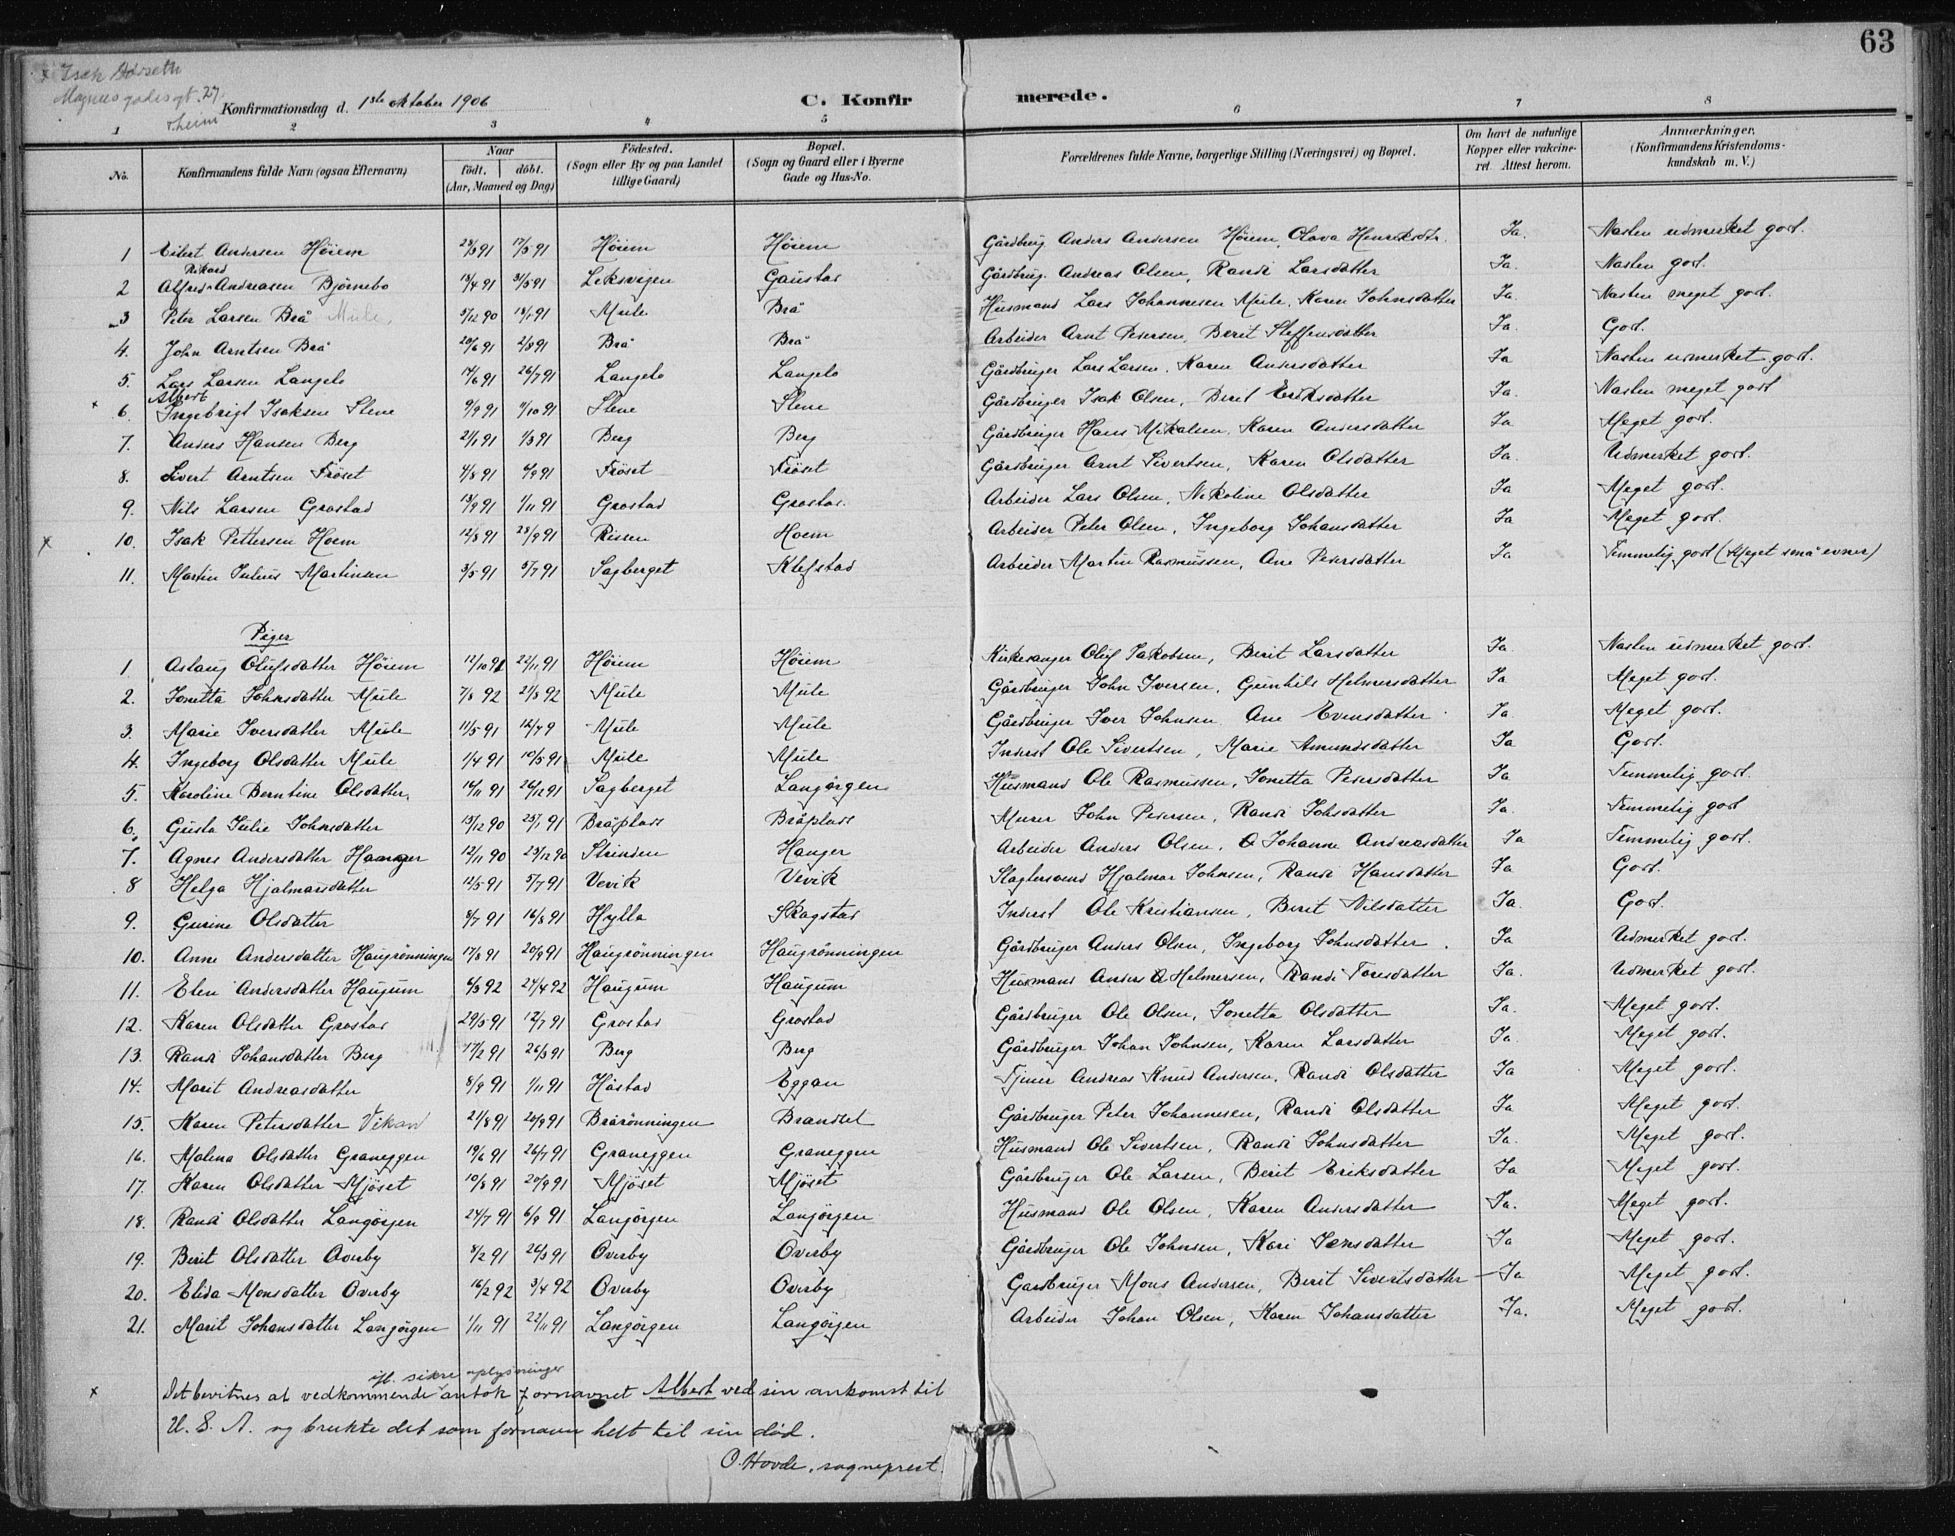 63
x Isak Horseth
Magnus godes gt. 27
Tr.heim
Konfirmationsdag d. 1ste oktober 1906
C. Konfirmerede.
1 2 3 4 5 6 7 8
No. Konfirmandens fulde Navn (ogsaa Efternavn) Naar født. døbt. (Aar, Maaned og Dag) Fødested. (Sogn eller By og paa Landet tillige Gaard) Bopæl. (Sogn og Gaard eller i Byerne Gade og Hus-No. Forældrenes fulde Navne, borgerlige Stilling (Næringsvei) og Bopæl. Om havt de naturlige Kopper eller vakcineret. Attest herom. Anmærkninger, (Konfirmandens Kristendomskundskab m. V.)
1 Eilert Andersen Höiem 23/3 91 17/5 91 Höiem Höiem Gårdbrug Anders Andersen Höiem, Olava Henriksdtr. Ja. Næsten udmerket godt.
2 Alfred Rikard Andreasen Björnebo 13/4 91 31/5 91 Leksvigen Gaustad Gårdbrug. Andreas Olsen, Randi Larsdatter Ja. Næsten godt.
3 Peter Larsen Brå Mule, 5/12 90 18/1 91 Mule Brå Husmand Lars Johannesen Mule, Karen Johnsdatter Ja. Næsten meget godt.
4. John Arntsen Brå 20/6 91 2/8 91 Brå Brå Arbeider Arnt Pedersen, Berit Steffensdatter Ja. Godt.
5. Lars Larsen Langelo 14/6 91 26/7 91 Langelo Langelo Gårdbruger Lars Larsen, Karen Andersdatter Ja Næsten udmerket godt.
x 6. Albert Ingebrigt Isaksen Slene 9/9 91 11/10 91 Slene Slene Gårdbruger Isak Olsen, Berit Eriksdatter Ja. Næsten meget godt
7. Anders Hansen Berg 21/1 91 1/3 91 Berg Berg Gårdbruger Hans Mikalsen, Karen Andersdatter Ja Meget godt.
8. Sivert Arntsen Fröset 4/8 91 6/9 91 Fröset Fröset Gårdbruger Arnt Sivertsen, Karen Olsdatter Ja. Udmerket godt.
9. Nils Larsen Grostad 13/9 91 1/11 91 Grostad Grostad. Arbeider Lars Olsen, Nikoline Olsdatter Ja Meget godt.
x 10. Isak Pettersen Hoem 12/8 91 28/9 91 Rissen Hoem Arbeider Peter Olsen, Ingeborg Johansdatter Ja Meget godt.
11. Martin Julius Martinsen 3/5 91 5/7 91 Sagberget Klefstad Arbeider Martin Rasmussen, Ane Pedersdatter Ja Temmelig godt (Meget små evner)
Piger
1 Aslaug Olufsdatter Höiem 12/10 91 22/11 91 Höiem Höiem Kirkesanger Oluf Jakobsen, Berit Larsdatter Ja. Næsten udmerket godt.
2. Jonetta Johnsdatter Mule 7/3 92 21/3 92 Mule Mule Gårdbruger John Iversen, Gunhild Helmersdatter Ja Meget godt.
3. Marie Iversdatter Mule 11/5 91 12/7 9 Mule Mule Gårdbruger Iver Johnsen Ane Evensdatter Ja Meget godt.
4. Ingeborg Olsdatter Mule 1/4 91 10/5 91 Mule Mule Inderst Ole Sivertsen, Marie Amundsdatter Ja Godt.
5. Karoline Berntine Olsdatter, 14/11 91 26/12 91 Sagberget Langörgen Husmand Ole Rasmussen, Jonetta Pedersdatter Ja Temmelig godt.
6. Gusta Julie Johnsdatter 13/12 90 25/1 91 Bråplads Bråplads Murer John Pedersen, Randi Johsdatter Ja. Temmelig godt
7. Agnes Andersdatter Hanger 12/11 90 23/12 90 Strinden Hanger Arbeider Anders Olsen, Johanne Andreasdatter Ja Temmelig godt.
8 Helga Hjalmarsdatter 12/5 91 5/7 91 Vevik Vevik Slagtersvend Hjalmar Johnsen, Randi Hansdatter Ja Godt.
9. Gurine Olsdatter 8/7 91 16/8 91 Hylla Skagstad Inderst Ole Kristiansen, Berit Nilsdatter Ja. Godt.
10. Anne Andersdatter Haugrönningen 17/8 91 20/9 91 Haugrönningen Haugrönningen Gårdbruger Anders Olsen, Ingeborg Johnsdatter. Ja Udmerket godt.
11. Elen Andersdatter Haugum 6/3 92 24/4 92 Haugum Haugum Husmand Anders Helmersen, Randi Toresdatter Ja. Udmerket godt.
12. Karen Olsdatter Grostad 29/5 91 12/7 91 Grostad Grostad Gårdbruger Ole Olsen, Jonetta Olsdatter Ja. Meget godt.
13. Randi Johansdatter Berg 17/2 91 26/3 91 Berg Berg Gårdbruger Johan Johnsen, Karen Larsdatter Ja. Meget godt.
14. Marit Andreasdatter 8/9 91 1/11 91 Håstad Eggan Tjener Andreas Knud Andersen, Randi Olsdatter Ja Meget godt.
15. Karen Petersdatter Vikan 21/8 91 20/9 91 Brårönningen Brandset Gårdbruger Peter Johannesen, Randi Olsdatter Ja Meget godt.
16. Malena Olsdatter Graneggen 19/6 91 26/7 91 Graneggen Graneggen Husmand Ole Sivertsen, Randi Johnsdatter Ja. Meget godt.
17. Karen Olsdatter Mjöset 10/8 91 20/9 91 Mjöset Mjöset Gårdbruger Ole Larsen, Berit Eriksdatter Ja Meget godt.
18. Randi Olsdatter Langörgen 24/7 91 6/9 91 Langörgen Langörgen Husmand Ole Olsen, Karen Andersdatter Ja. Meget godt.
19. Berit Olsdatter Overby 8/2 91 26/3 91 Overby Overby Gårdbruger Ole Johnsen, Kari Jensdatter Ja Meget godt.
20. Elida Monsdatter Overby 16/2 92 3/4 92 Overby Overby Gardbruger Mons Andersen, Berit Sivertsdatter Ja Meget godt.
21. Marit Johansdatter Langörgen 1/11 91 22/11 91 Langörgen Langörgen Arbeider Johan Olsen, Karen Johansdatter Ja. Meget godt.
ifl. sikre oplysninger
x Det bevitnes at vedkommende antok fornavnet Albert ved sin ankomst til
U. S. A. og brukte det som fornavn helt til sin död.
O. Hovde, sogneprest.